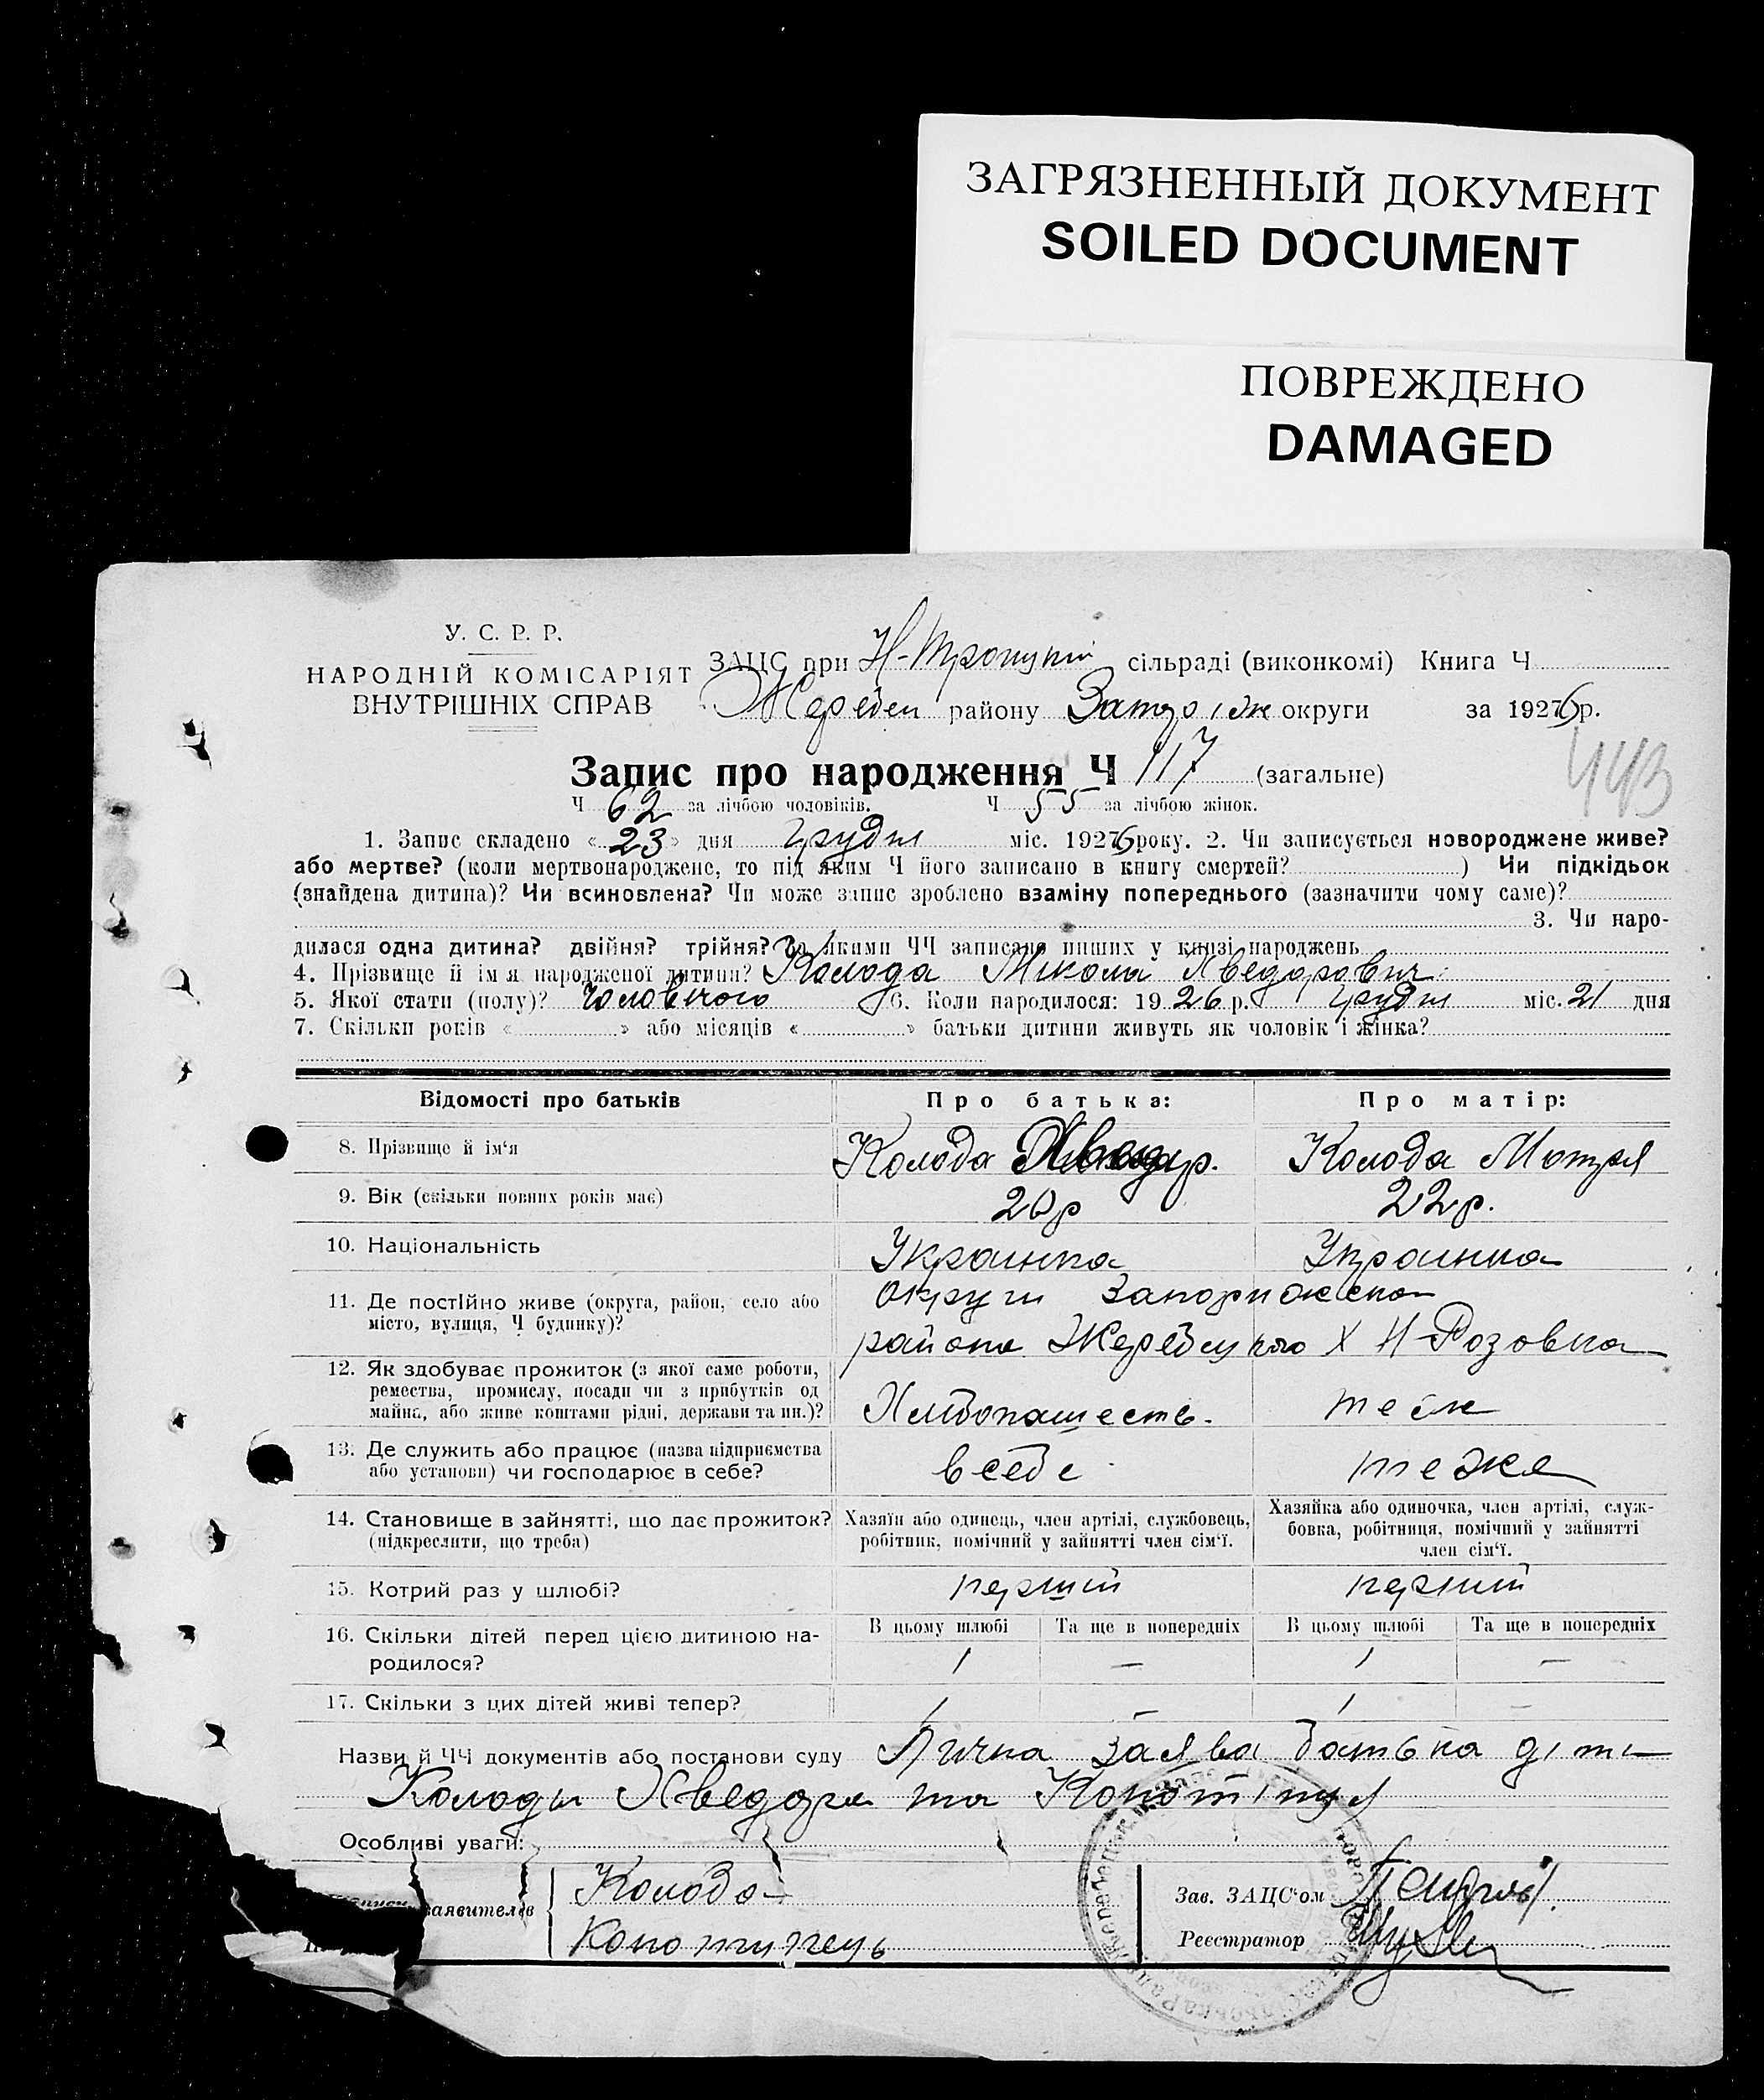 ЗАГРЯЗНЕННЫЙ ДОКУМЕНТ
SOILED DOCUMENT
ПОВРЕЖДЕНО
DAMAGED
У. С. Р. Р.
НАРОДНІЙ КОМІСАРІЯТ
ВНУТРІШНІХ СПРАВ
ЗАЦС при сільраді (виконкомі) Книга Ч
Жеребец району Запоріж округи за 1926 р.
443
Запис про народження Ч 117 (загальне)
Ч 62 за лічбою чоловіків. Ч 55 за лічбою жінок.
1. Запис складено «23» дня Грудня міс. 1926 року. 2. Чи записується новороджене живе?
або мертве? (коли мертвонароджене, то під яким Ч його записано в книгу смертей? ) Чи підкідьок
(знайдена дитина)? Чи всиновлена? Чи може запис зроблено взаміну попереднього (зазначити чому саме)?
3. Чи наро-
дилася одна дитина? двійня? трійня? За якими ЧЧ записано инших у книзі народжень
4. Прізвище й ім'я народженої дитини? Колода Микола Хведорович
5. Якої стати (полу)? Чоловічого 6. Коли народилося: 1926 р. Грудня міс. 21 дня
7. Скільки років « » або місяців « » батьки дитини живуть як чоловік і жінка?
Відомості про батьків Про батька: Про матір:
8. Прізвище й ім'я Колода Хведор. Колода Мотря
9. Вік (скільки повних років має) 20р 22р.
10. Національність Украинка Украинка
11. Де постійно живе (округа, район, село або Округи Запорижска
місто, вулиця, Ч будинку)? района Жеребецкого Х Н-Розовка
12. Як здобуває прожиток (з якої саме роботи,
ремества, промислу, посади чи з прибутків од
майна, або живе коштами рідні, держави та ин.)? Хлибопашеств. теж
13. Де служить або працює (назва підприємства
або установи) чи господарює в себе? в себе теже
14. Становище в зайнятті, що дає прожиток?
(підкреслити, що треба)
Хазяїн або одинець, член артілі, службовець,
робітник, помічний у зайнятті член сім'ї.
Хазяйка або одиночка, член артілі, служ-
бовка, робітниця, помічний у зайнятті
член сім'ї.
15. Котрий раз у шлюбі? перший перший
В цьому шлюбі Та ще в попередніх В цьому шлюбі Та ще в попередніх
16. Скільки дітей перед цією дитиною на-
родилося? 1 — 1 —
17. Скільки з цих дітей живі тепер? 1 — 1 —
Назви й ЧЧ документів або постанови суду Лична заява батька діти
Колоды Хведора та
Особливі уваги:
заявителів Колода
Зав. ЗАЦС'ом
Реєстратор